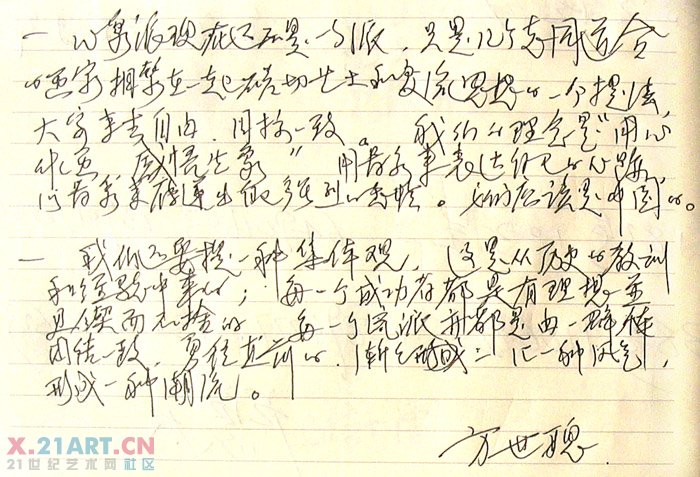 一 心象派现在还不是一个派，只是几个志同道合
的画家拥聚在一起切磋艺术和交流思想的一个提法，
大家来去自由，目标一致、我们的理念是“用心
作画 感悟生象” 用最 来表达自己的心
出 强烈的 。我们应该是中国的。
一 我们还要提一种集体观，这是从历史的教训
和经验中来的；每一个成功者都是有理想并
且锲而不舍的 每一个流派都是由一群
团结一致，勇往直前的，渐之形成 汇一种风气，
形成一种潮流。
方世聪
X.21ART.CN
21世纪艺术网社区